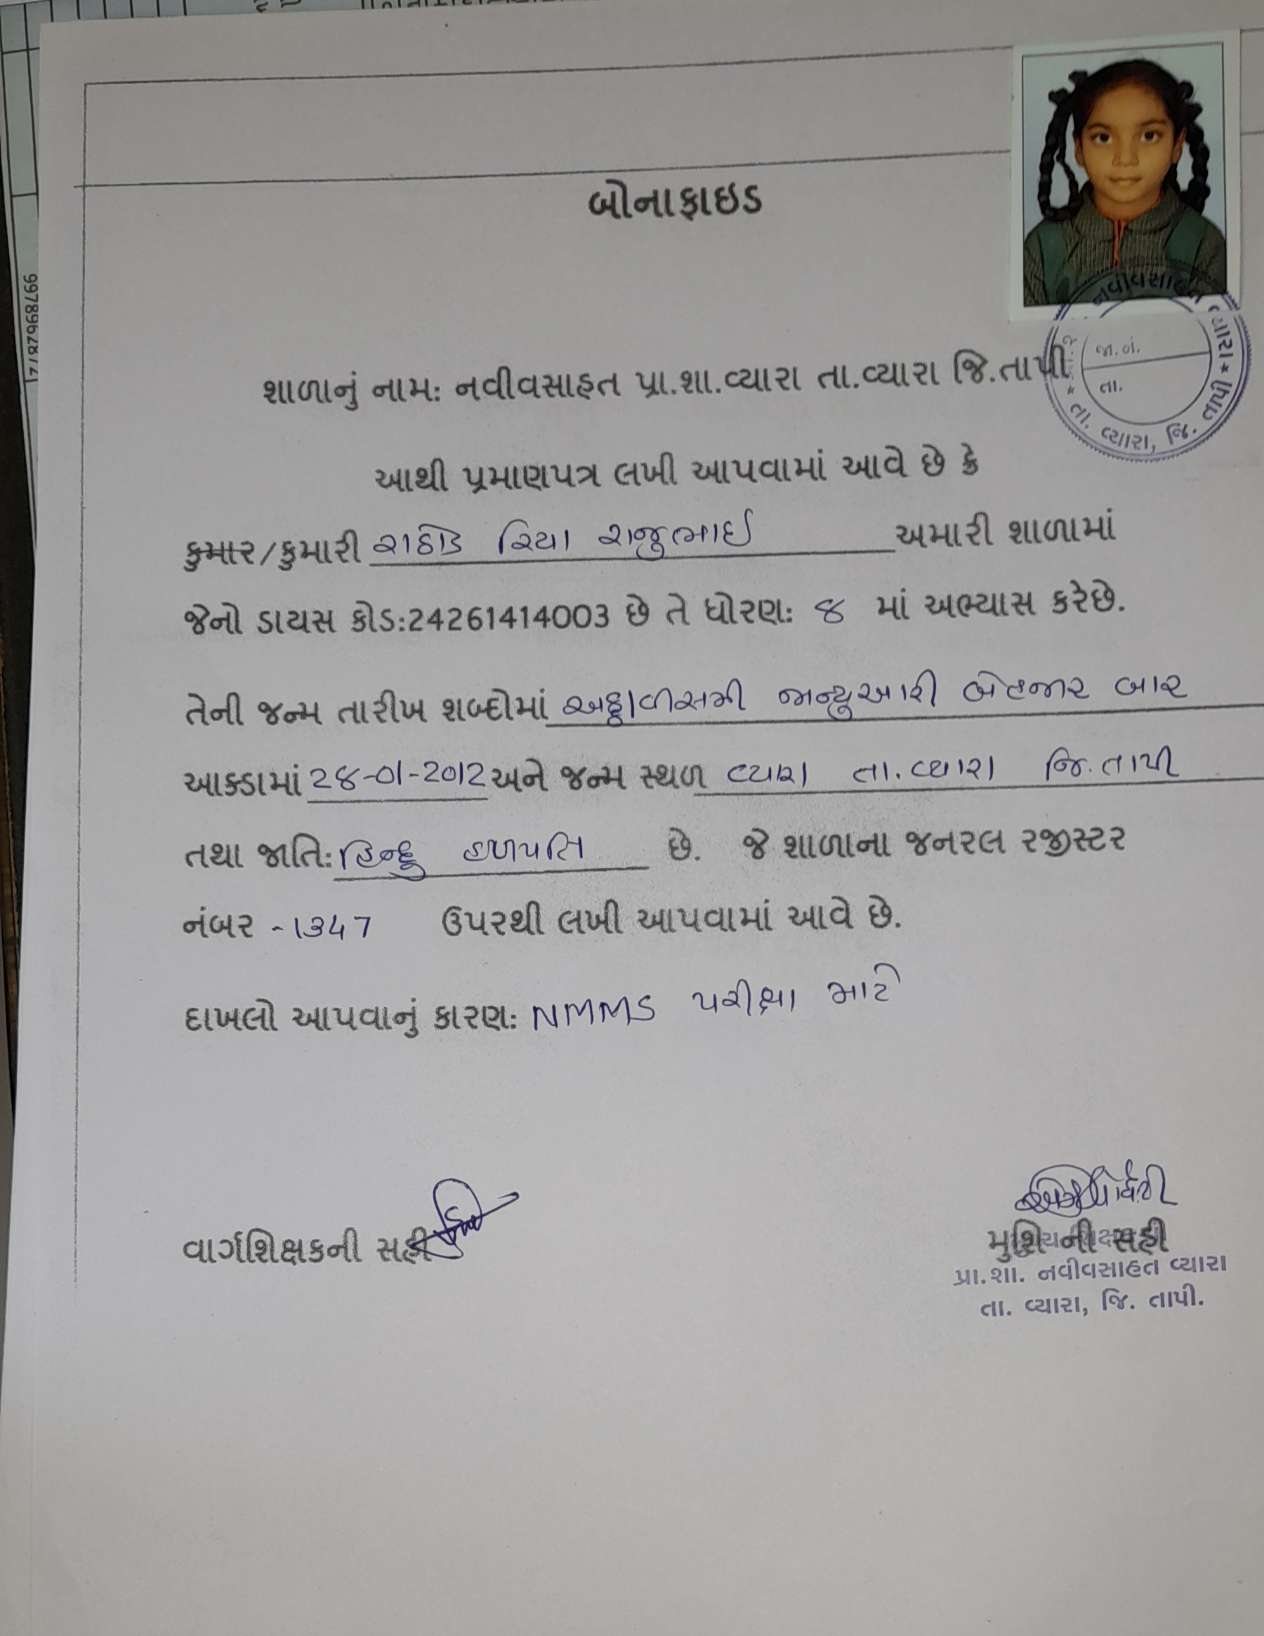 9978967871
બોનાફાઇડ
જા.નં.
તા.
તા. વ્યારા, જિ. તાપી
શાળાનું નામ: નવીવસાહત પ્રા.શા.વ્યારા તા.વ્યારા જિ.તાપી
આથી પ્રમાણપત્ર લખી આપવામાં આવે છે કે
કુમાર/કુમારી રાઠોડ રિયા રાજુભાઈ અમારી શાળામાં
જેનો ડાયસ કોડ:24261414003 છે તે ધોરણ: ૪ માં અભ્યાસ કરેછે.
તેની જન્મ તારીખ શબ્દોમાં અઠ્ઠાવીસમી જાન્યુઆરી બેહજાર બાર
આક્ડામાં 2૪-01-2012 અને જન્મ સ્થળ વ્યારા તા.વ્યારા જિ.તાપી
તથા જાતિ: હિન્દુ હળપતિ છે. જે શાળાના જનરલ રજીસ્ટર
નંબર -1347 ઉપરથી લખી આપવામાં આવે છે.
દાખલો આપવાનું કારણ: NMMS પરીક્ષા માટે
વાર્ગશિક્ષકની સહી
મુશિ ની સહી
પ્રા.શા. નવીવસાહત વ્યારા
તા. વ્યારા, જિ. તાપી.